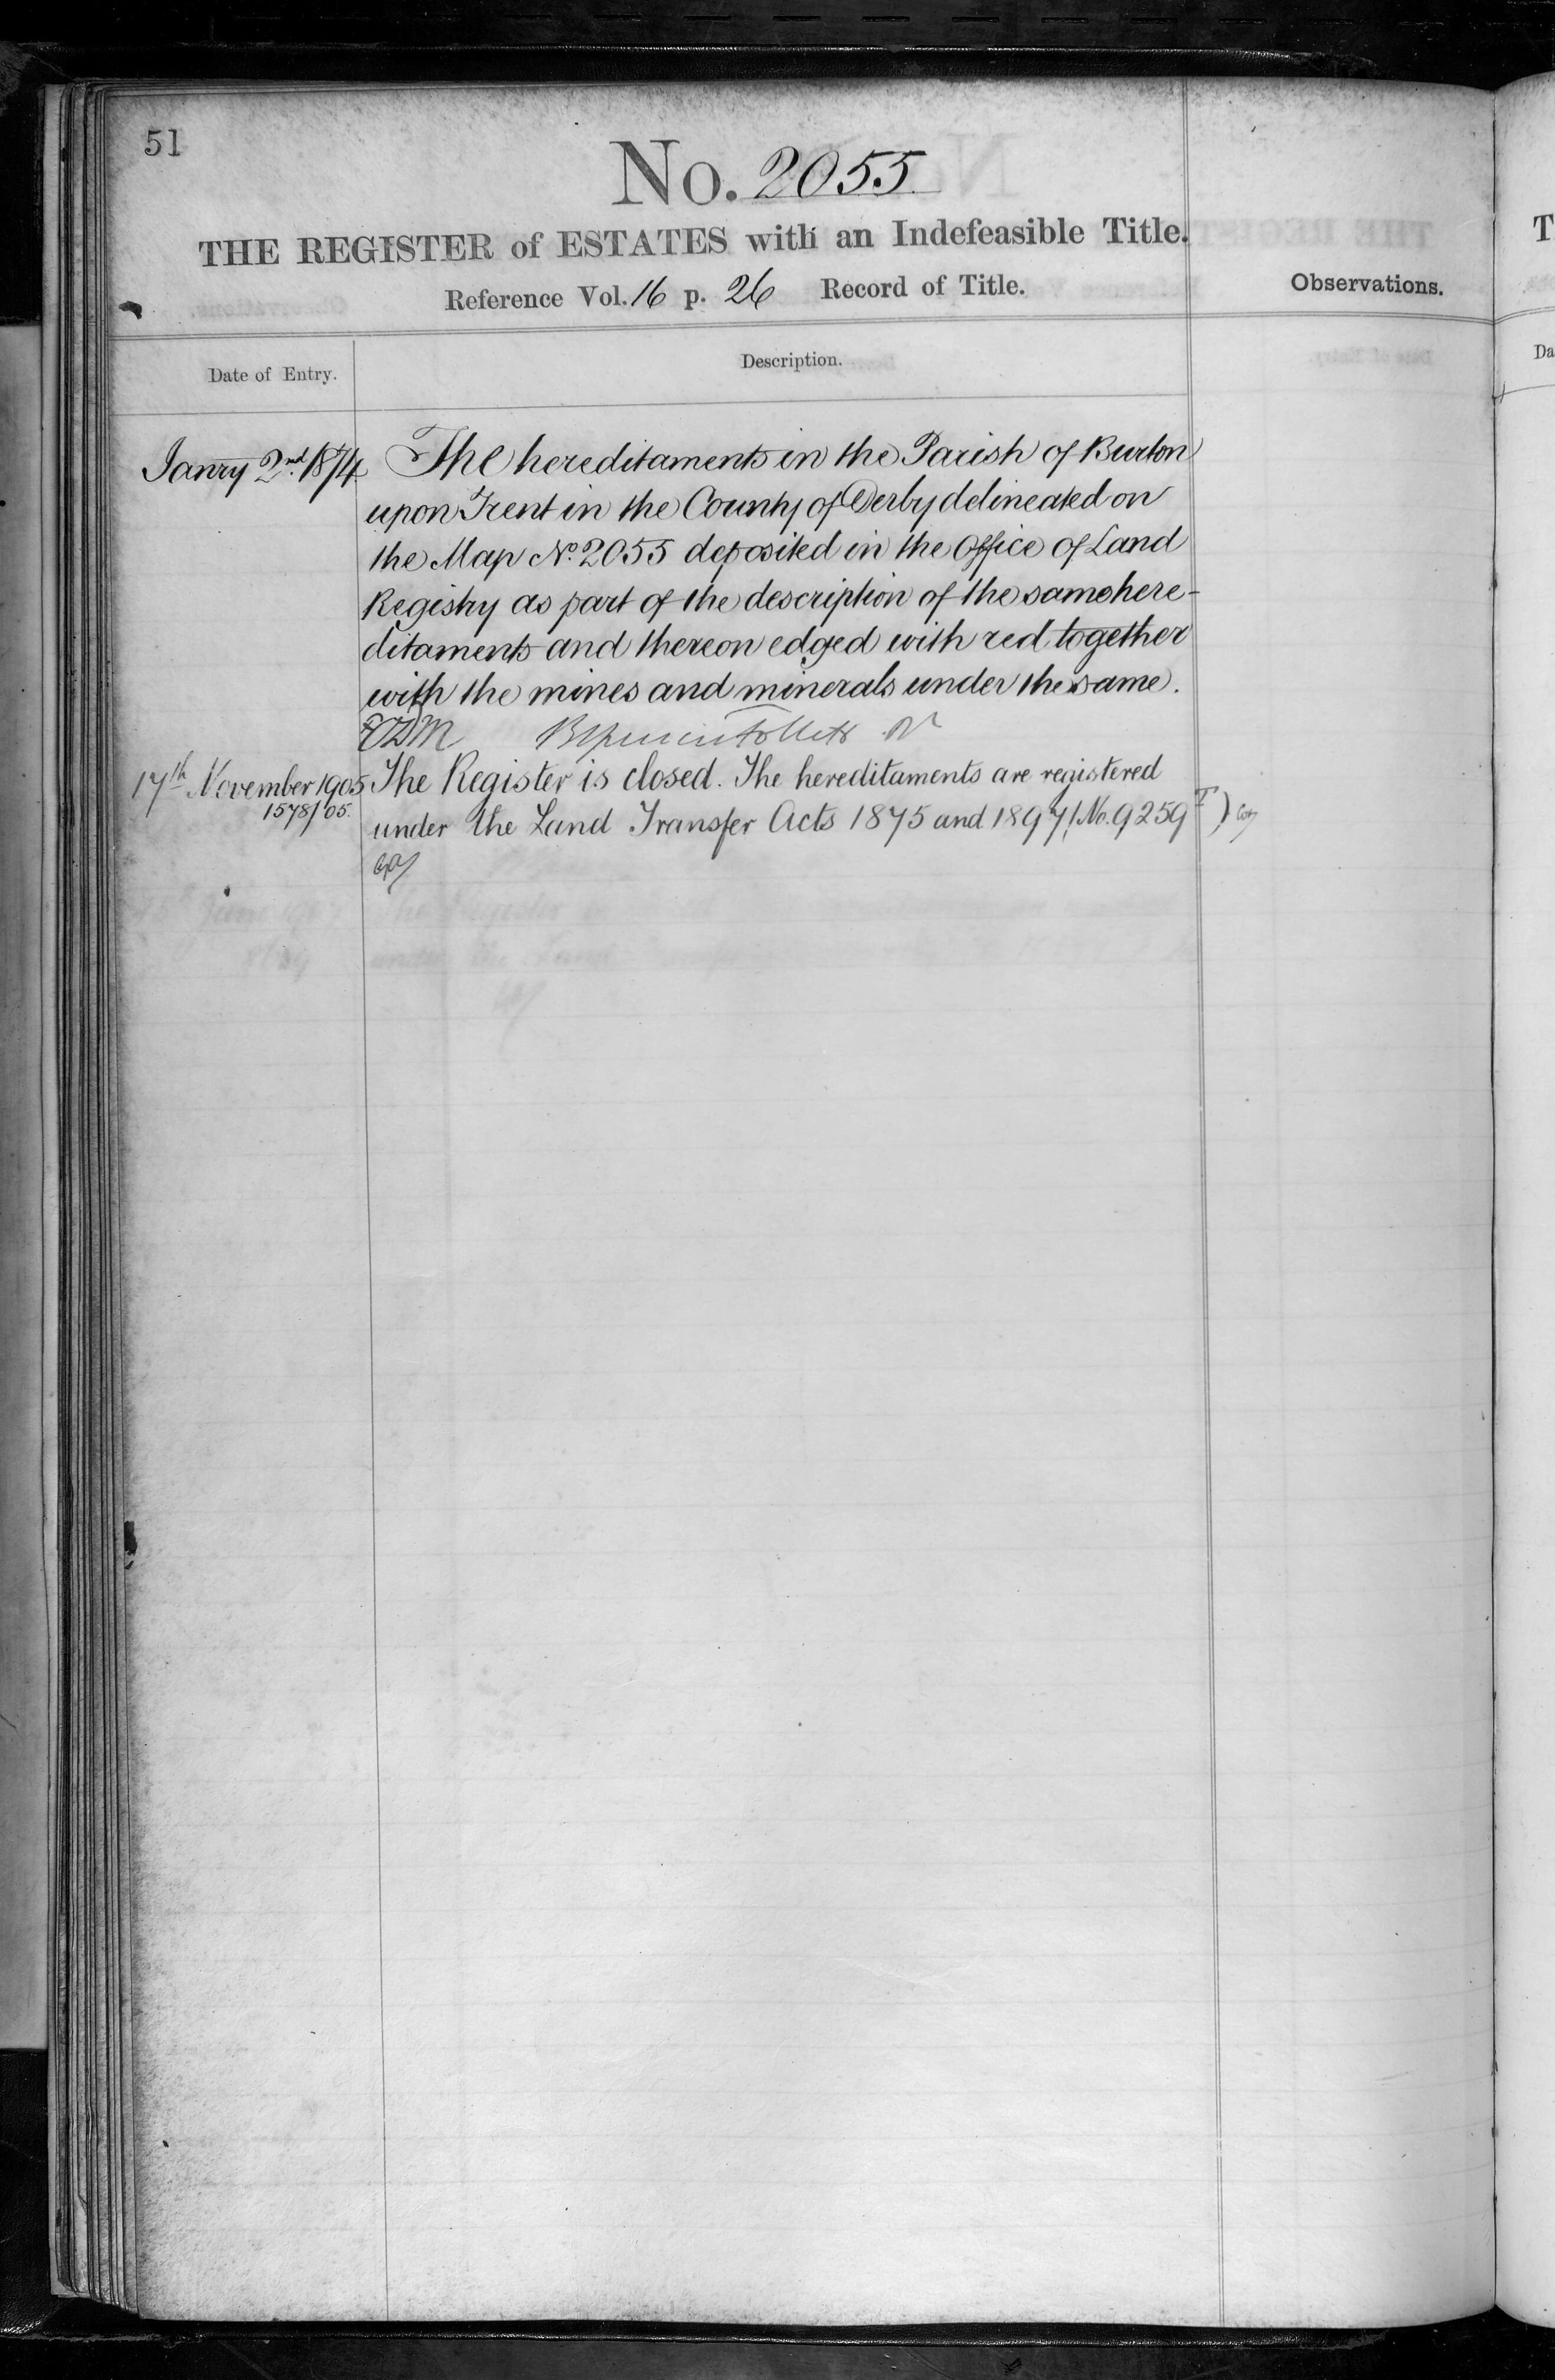 51
No. 2055
THE REGISTER of ESTATES with an Indefeasible Title.
Reference Vol. 16 p. 26 Record of Title.
Observations.
Date of Entry.
Description.
Janry 2nd. 1874
The hereditaments in the Parish of Burton
upon Trent in the County of Derby delineated on
the Map No. 2055 deposited in the Office of Land
Registry as part of the description of the same here-
ditaments and thereon edged with red together
with the mines and minerals under the same.
17th November 1905
1578/05.
The Register is closed. The hereditaments are registered
under the Land Transfer Acts 1875 and 1897 (No. 9259
T
Da